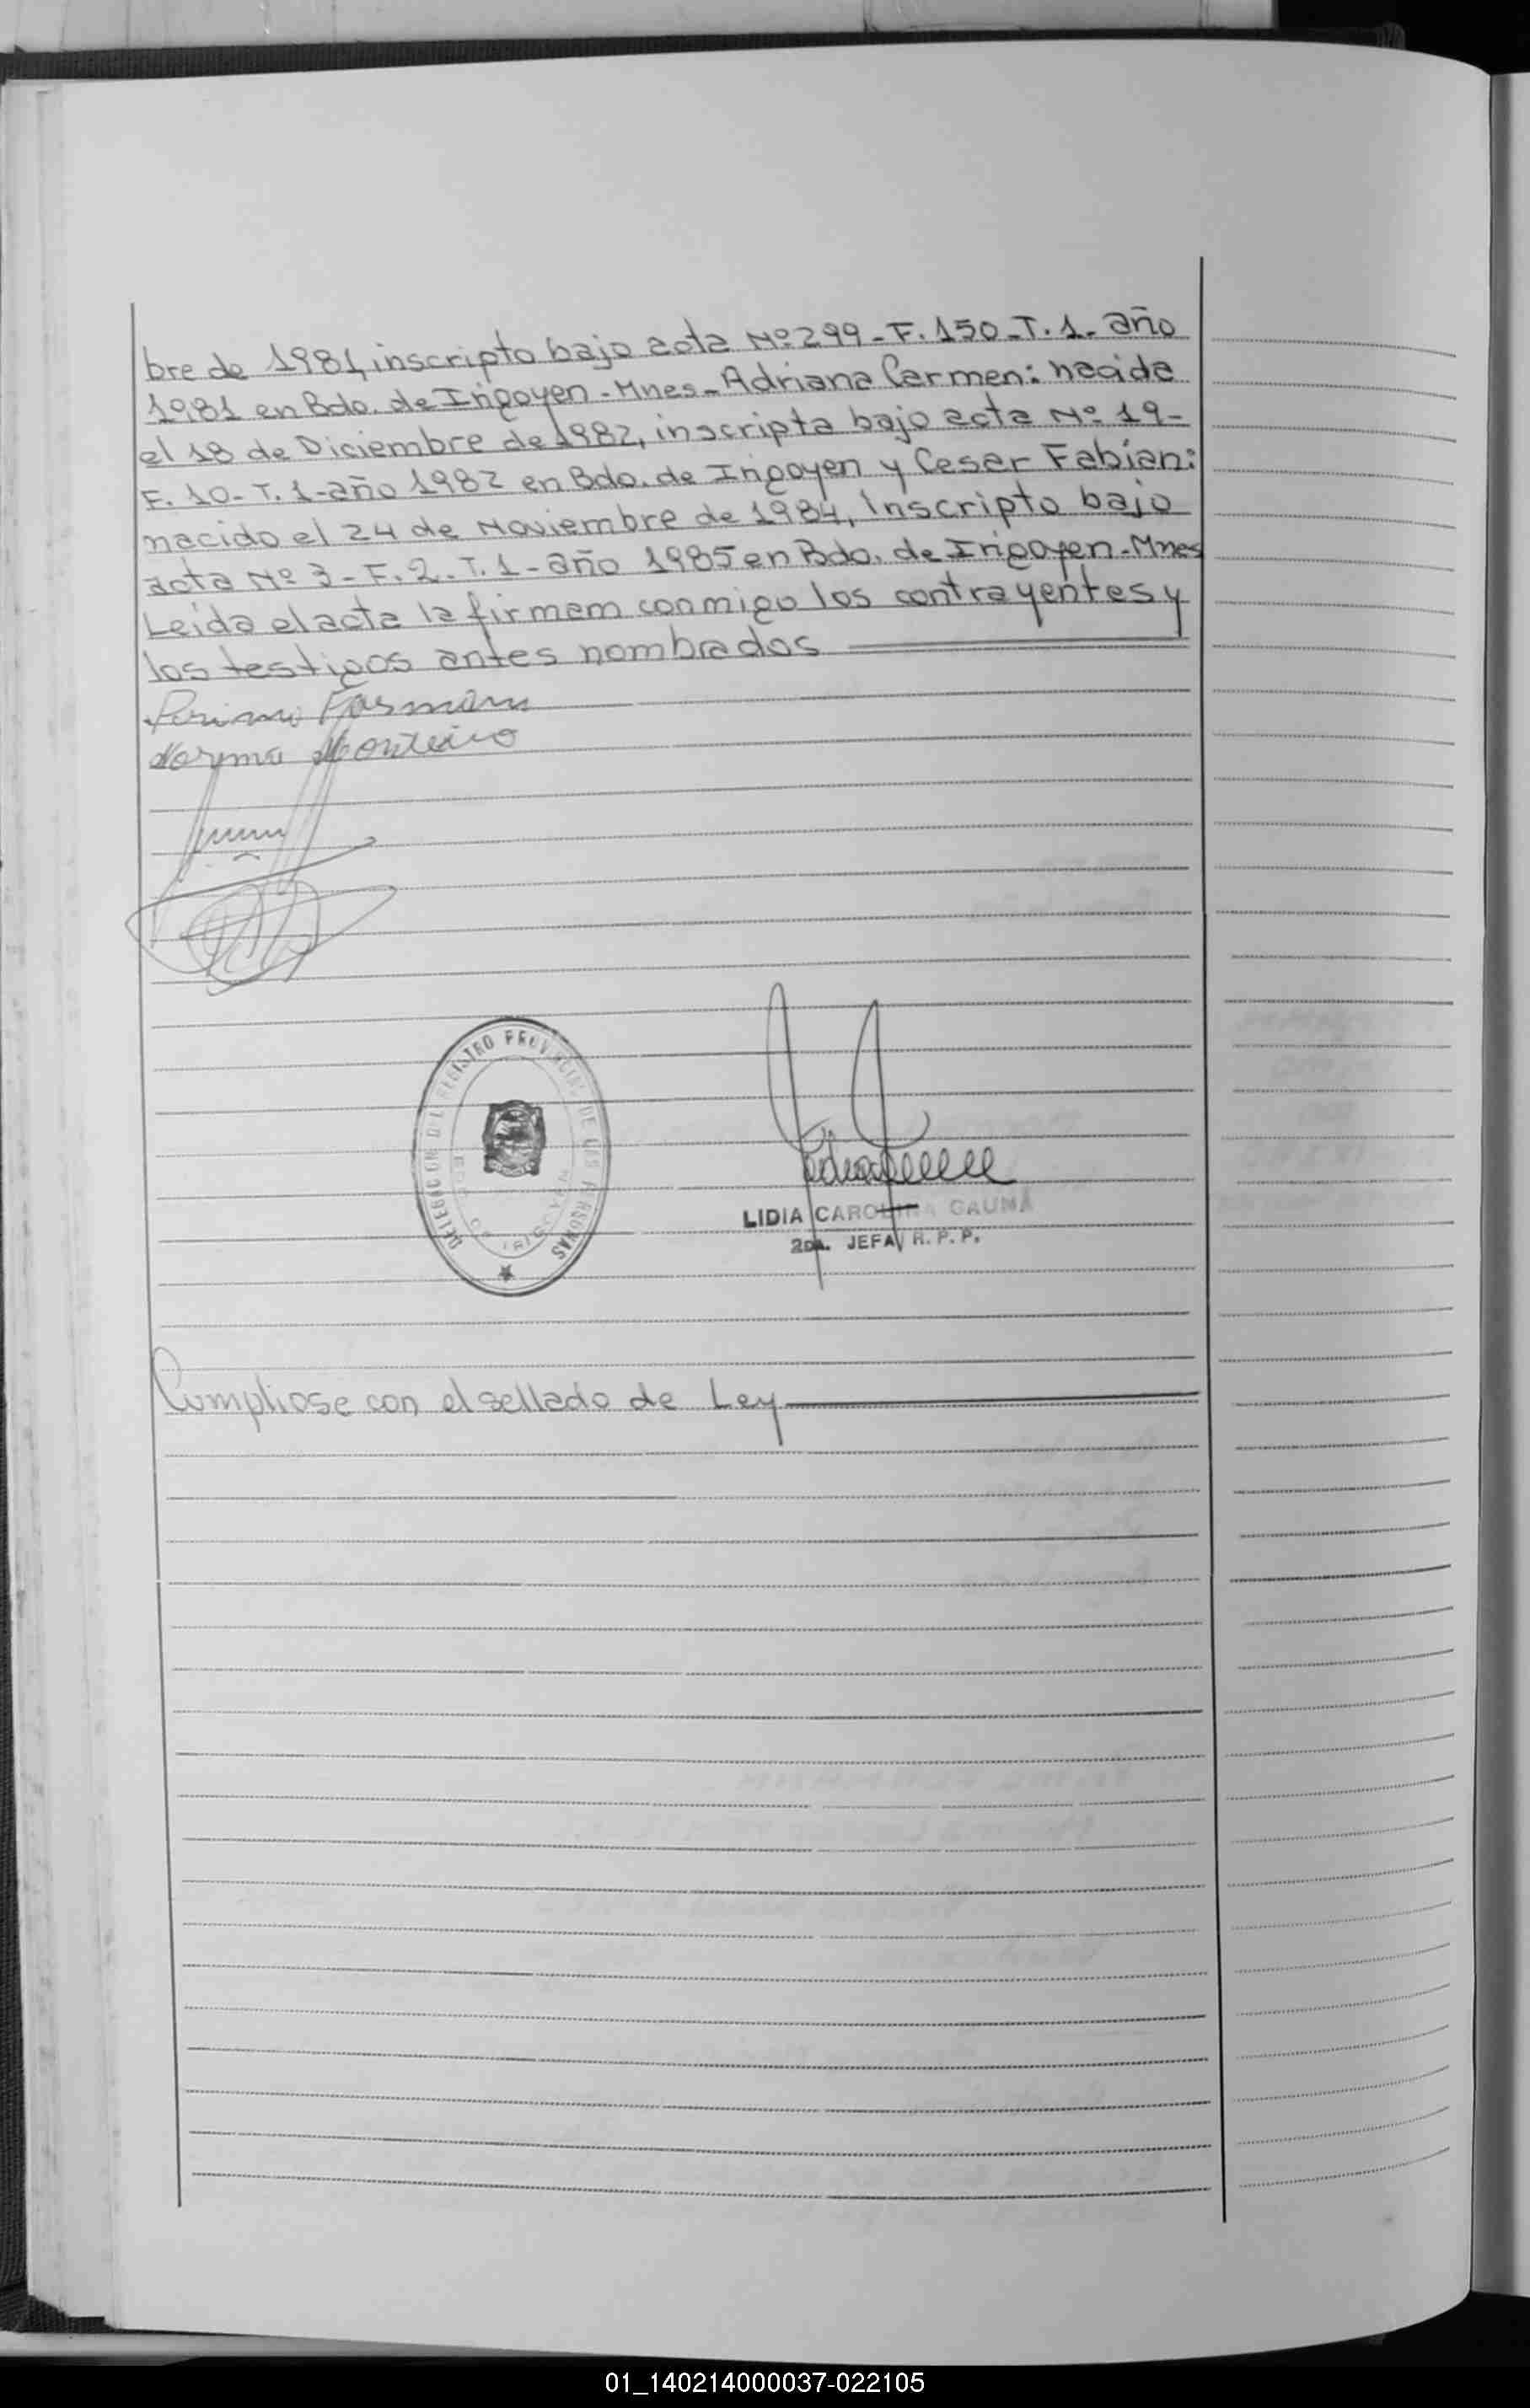 bre de 1981, inscripto bajo acta Nº 299 - F. 150 - T. 1 - año
1981 en Bdo. de Irigoyen - Mnes - Adriana Carmen: nacida
el 18 de Diciembre de 1982, inscripta bajo acta Nº 19 -
F. 10 - T. 1 - año 1982 en Bdo. de Irigoyen y Cesar Fabián:
nacido el 24 de Noviembre de 1984, Inscripto bajo
acta Nº 3 - F. 2 - T. 1 - año 1985 en Bdo. de Irigoyen - Mnes
Leída el acta la firmam conmigo los contrayentes y
los testigos antes nombrados
Norma Monteiro
DELEGACION DEL REGISTRO PROVINCIAL DE LAS PERSONAS
BDO. DE IRIGOYEN
LIDIA CAROLINA GAUNA
2DA. JEFA R. P. P.
Cumpliose con el sellado de Ley
01_140214000037-022105